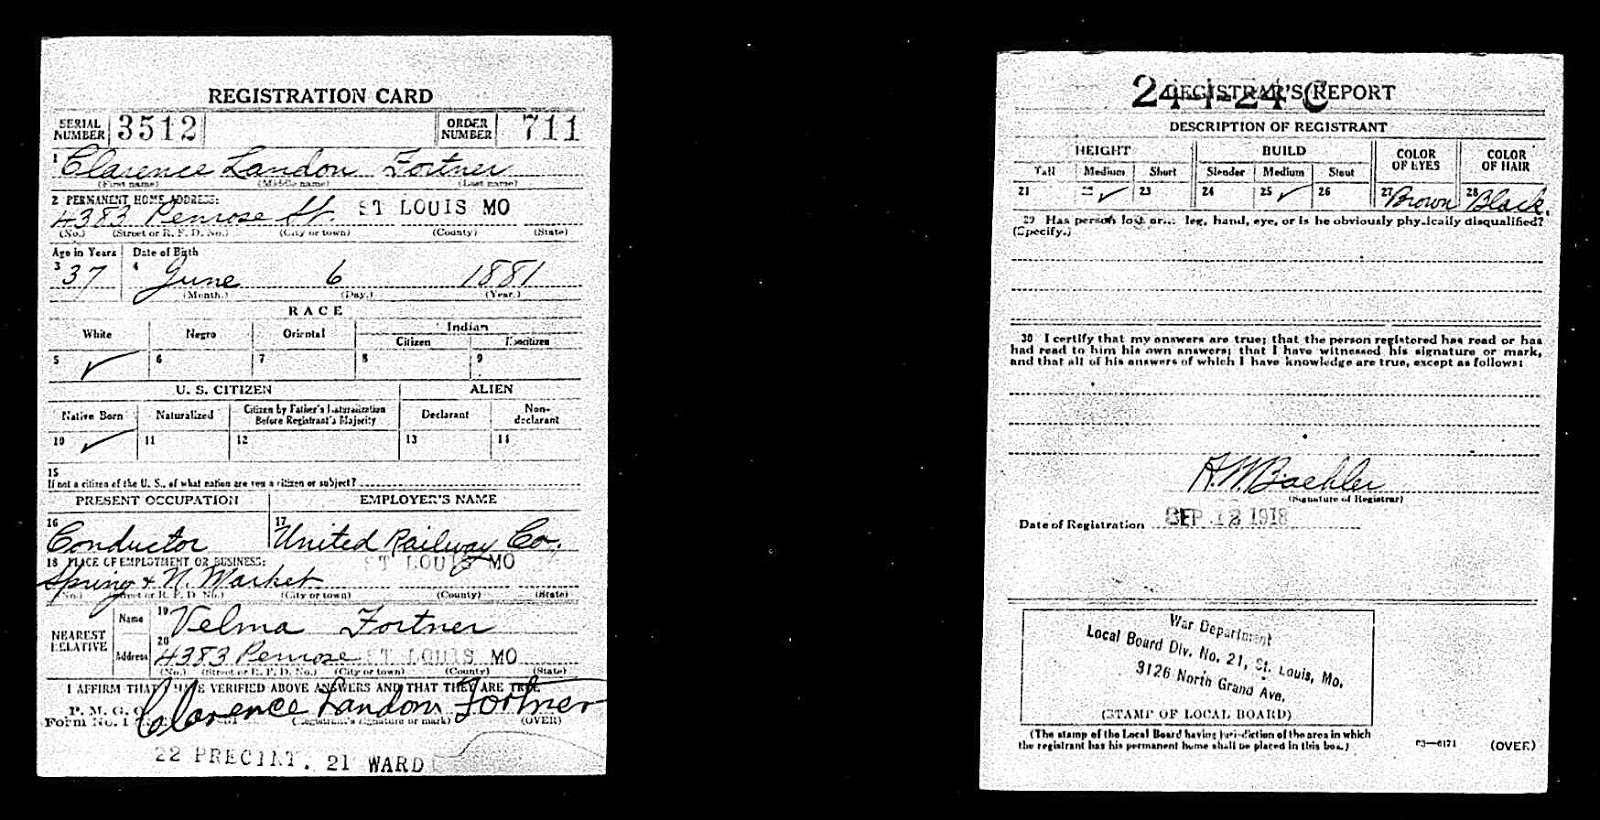 REGISTRATION CARD
SERIAL NUMBER 3512 ORDER NUMBER 711
1 Clarence Landon Fortner
(First name) (Middle name) (Last name)
2 PERMANENT HOME ADDRESS:
4383 Penrose St. ST LOUIS MO
(No.) (Street or R. F. D. No.) (City or town) (County) (State)
Age in Years Date of Birth
3 37 4 June 6 1881
(Month.) (Day.) (Year.)
RACE
White Negro Oriental Indian
Citizen Noncitizen
5 ✓ 6 7 8 9
U. S. CITIZEN ALIEN
Native Born Naturalized Citizen by Father's Naturalization Before Registrant's Majority Declarant Non-declarant
10 ✓ 11 12 13 14
15
If not a citizen of the U. S., of what nation are you a citizen or subject?
PRESENT OCCUPATION EMPLOYER'S NAME
16 Conductor 17 United Railway Co.
18 PLACE OF EMPLOYMENT OR BUSINESS: ST LOUIS MO
Spring & N. Market
(No.) (Street or R. F. D. No.) (City or town) (County) (State)
NEAREST RELATIVE Name 19 Velma Fortner
Address 20 4383 Penrose ST LOUIS MO
(No.) (Street or R. F. D. No.) (City or town) (County) (State)
I AFFIRM THAT I HAVE VERIFIED ABOVE ANSWERS AND THAT THEY ARE TRUE
P. M. G. O.
Form No. 1 Clarence Landon Fortner
(Registrant's signature or mark) (OVER)
22 PRECINT. 21 WARD
24-1-24 C
REGISTRAR'S REPORT
DESCRIPTION OF REGISTRANT
HEIGHT BUILD COLOR OF EYES COLOR OF HAIR
Tall Medium Short Slender Medium Stout
21 22 ✓ 23 24 25 ✓ 26 27 Brown 28 Black.
29 Has person lost arm, leg, hand, eye, or is he obviously physically disqualified?
(Specify.)
30 I certify that my answers are true; that the person registered has read or has
had read to him his own answers; that I have witnessed his signature or mark,
and that all of his answers of which I have knowledge are true, except as follows:
(Signature of Registrar)
Date of Registration SEP 12 1918
War Department
Local Board Div. No. 21, St. Louis, Mo.
3126 North Grand Ave.
(STAMP OF LOCAL BOARD)
(The stamp of the Local Board having jurisdiction of the area in which
the registrant has his permanent home shall be placed in this box.)
03—6171 (OVER)